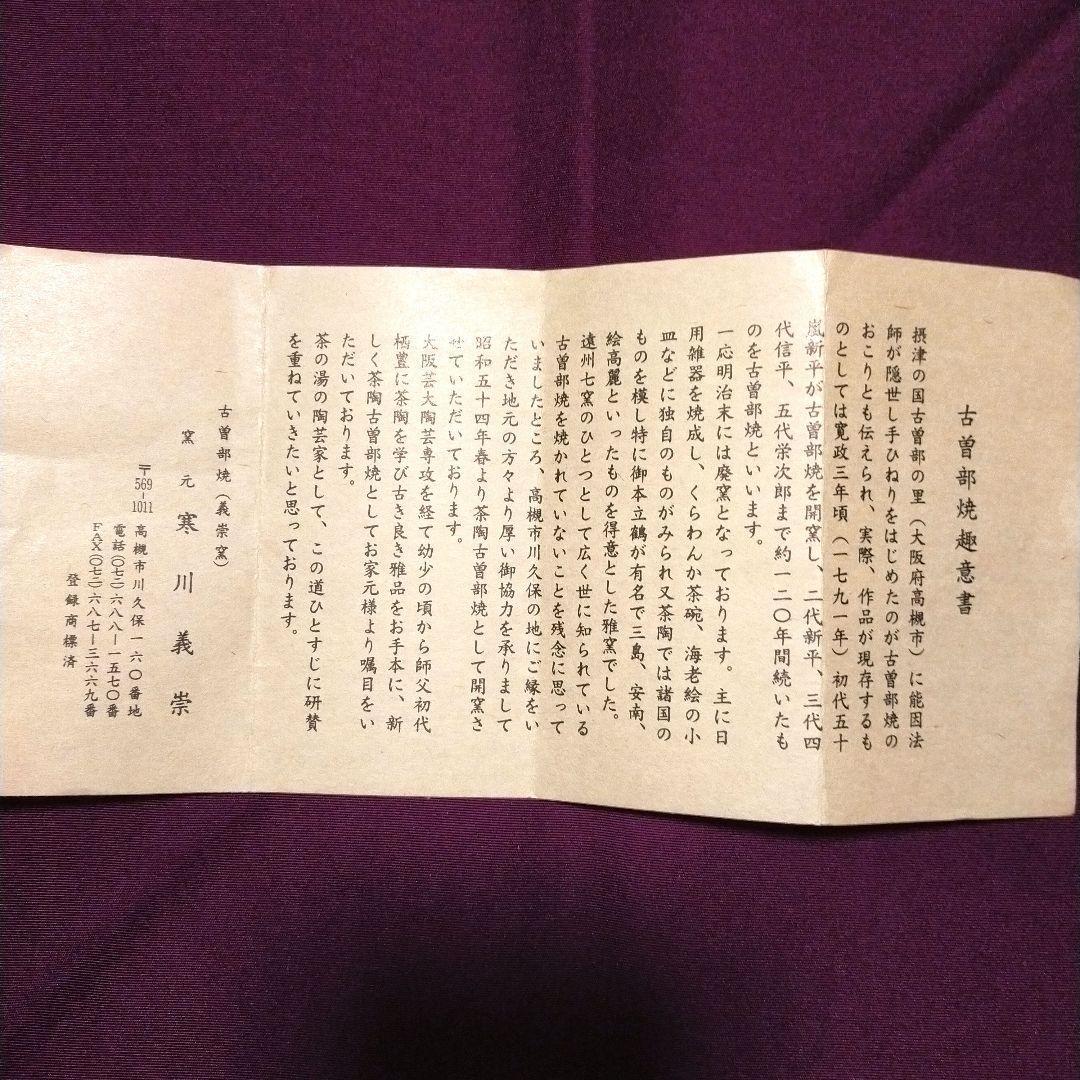 古曽部焼趣意書
摂津の国古曽部の里（大阪府高槻市）に能因法
師が隠世し手ひねりをはじめたのが古曽部焼の
おこりとも伝えられ、実際、作品が現存するも
のとしては寛政三年頃（一七九一年）初代五十
嵐新平が古曽部焼を開窯し、二代新平、三代四
代信平、五代栄次郎まで約一二〇年間続いたも
のを古曽部焼といいます。
一応明治末には廃窯となっております。主に日
用雑器を焼成し、くらわんか茶碗、海老絵の小
皿などに独自のものがみられ又茶陶では諸国の
ものを模し特に御本立鶴が有名で三島、安南、
絵高麗といったものを得意とした雅窯でした。
遠州七窯のひとつとして広く世に知られている
古曽部焼を焼かれていないことを残念に思って
いましたところ、高槻市川久保の地にご縁をい
ただき地元の方々より厚い御協力を承りまして
昭和五十四年春より茶陶古曽部焼として開窯さ
せていただいております。
大阪芸大陶芸専攻を経て幼少の頃から師父初代
栖豊に茶陶を学び古き良き雅品をお手本に、新
しく茶陶古曽部焼としてお家元様より嘱目をい
ただいております。
茶の湯の陶芸家として、この道ひとすじに研賛
を重ねていきたいと思っております。
古曽部焼（義崇窯）
窯元 寒川義崇
〒569-1011 高槻市川久保一六〇番地
電話（〇七二）六八八ー一五七〇番
FAX（〇七二）六八七ー三六六九番
登録商標済